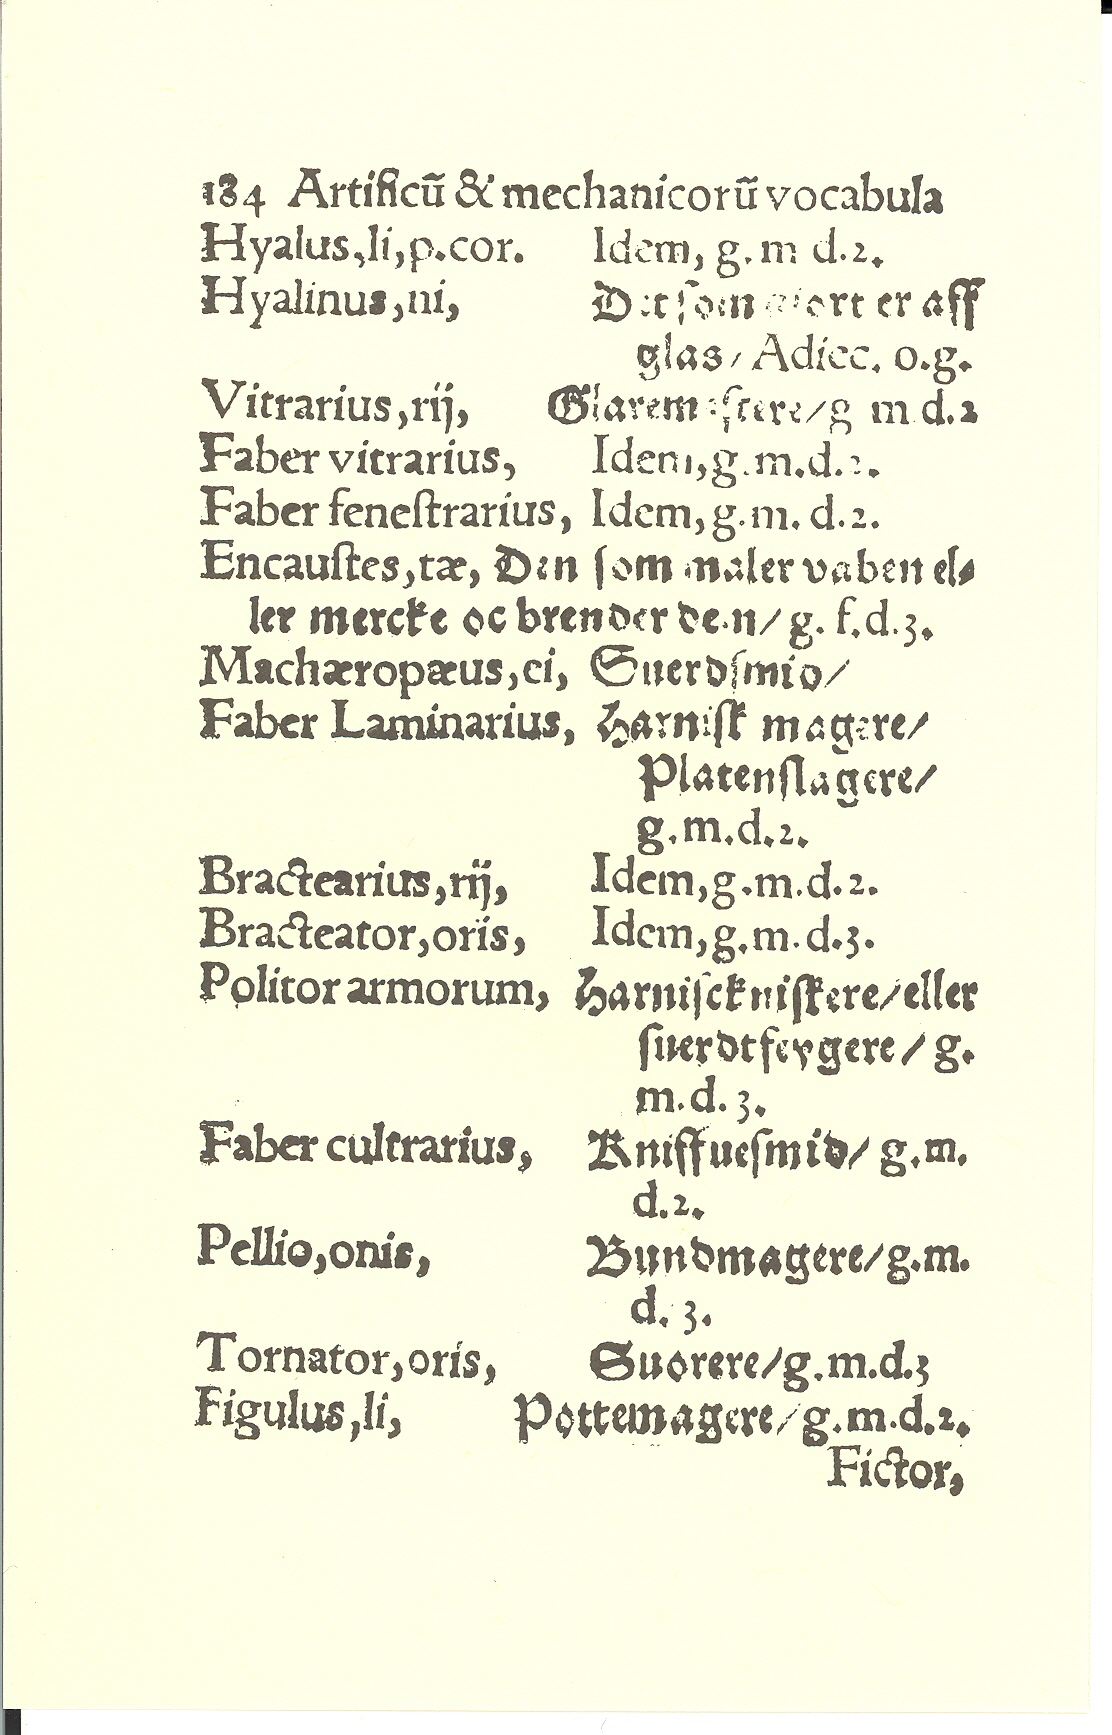 184 Artificũ & mechanicorũ vocabula
Hyalus,li,p.cor. Idem, g.m d.2.
Hyalinus,ni, Det som giort er aff
glas/ Adiec. o.g.
Vitrarius,rij, Glaremestere/g m.d.2
Faber vitrarius, Idem,g.m.d.2.
Faber fenestrarius, Idem,g.m.d.2.
Encaustes,tæ, Den som maler vaben el⸗
ler mercke oc brender den/ g. f.d.3.
Machæropæus,ei, Suerdsmid/
Faber Laminarius, Harnisk magere/
Platenslagere/
g.m.d.2.
Bractearius,rij, Idem,g.m.d.2.
Bracteator,oris, Idem,g.m.d.3.
Politor armorum, Harnisckuiskere/eller
suerdtfeygere/ g.
m.d.3.
Faber cultrarius, Kniffuesmid/ g.m.
d.2.
Pellio,onis, Bundmagere/g.m.
d. 3.
Tornator,oris, Suorere/g.m.d.3
Figulus,li, Pottemagere/g.m.d.2.
Fictor,